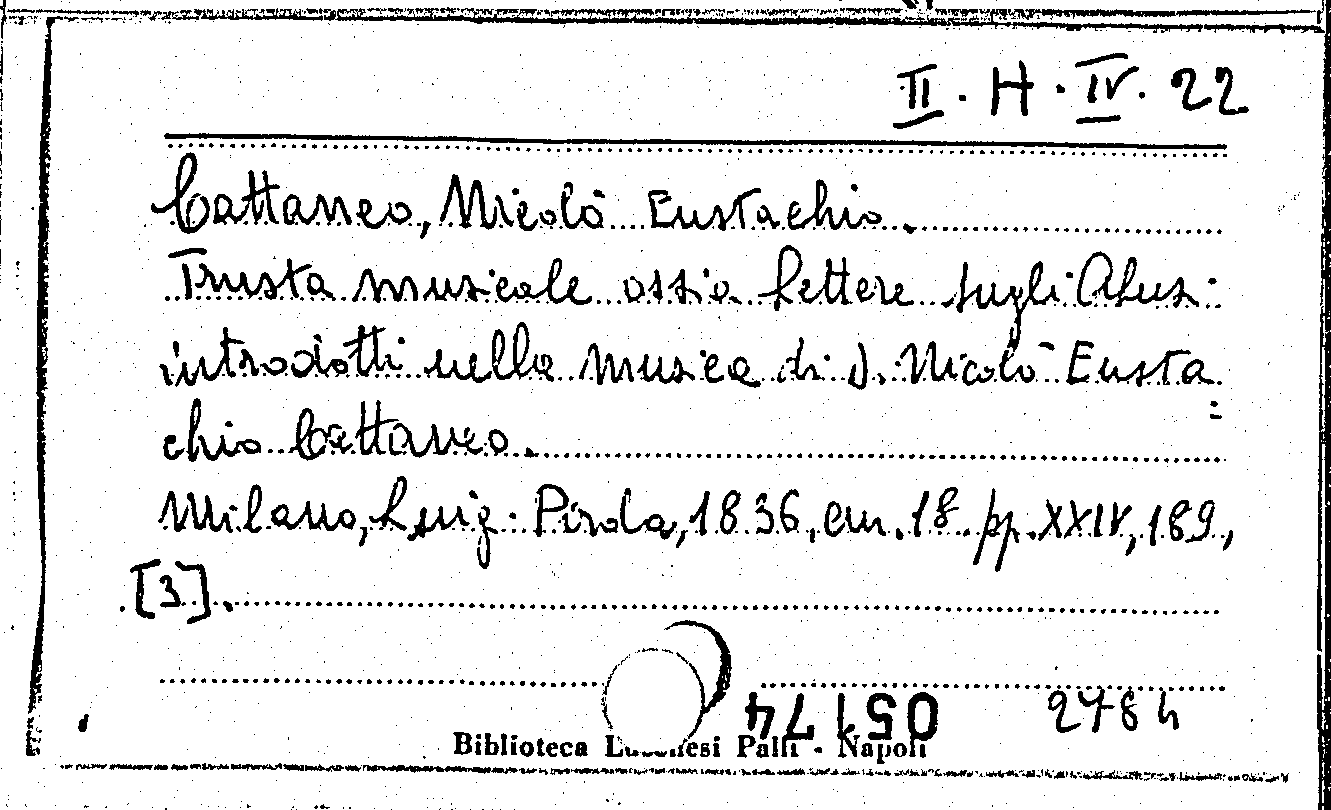 II. H. IV. 22
Cattaneo, Nicolò Eustachio.
Frusta musicale ossia Lettere sugli Abusi
introdotti nella musica di d. Nicolò Eusta=
chio Cattaneo.
Milano, Luigi Pirola, 1836, cm. 18. pp. XXIV, 189,
[3].
05174
2784
Biblioteca Lucchesi Palli - Napoli